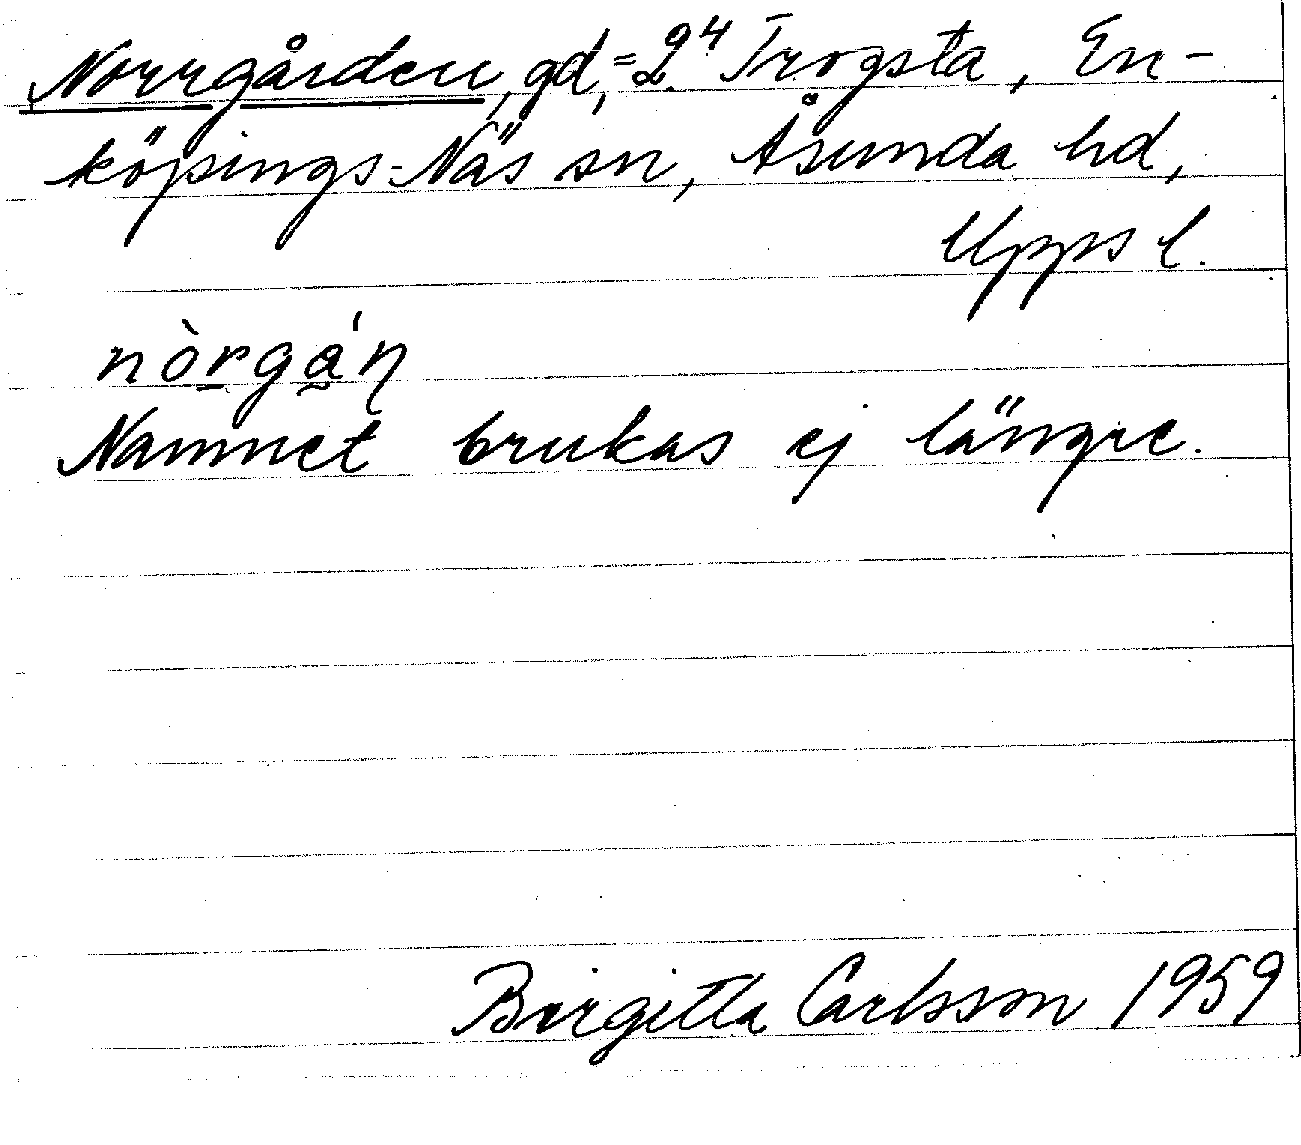 Norrgården, gd, = 2⁴ Trogsta, En-
köpings-Näs sn, Åsunda hd,
Upps l.
nòrgá̰ɳ
Namnet brukas ej längre.
Birgitta Carlsson 1959